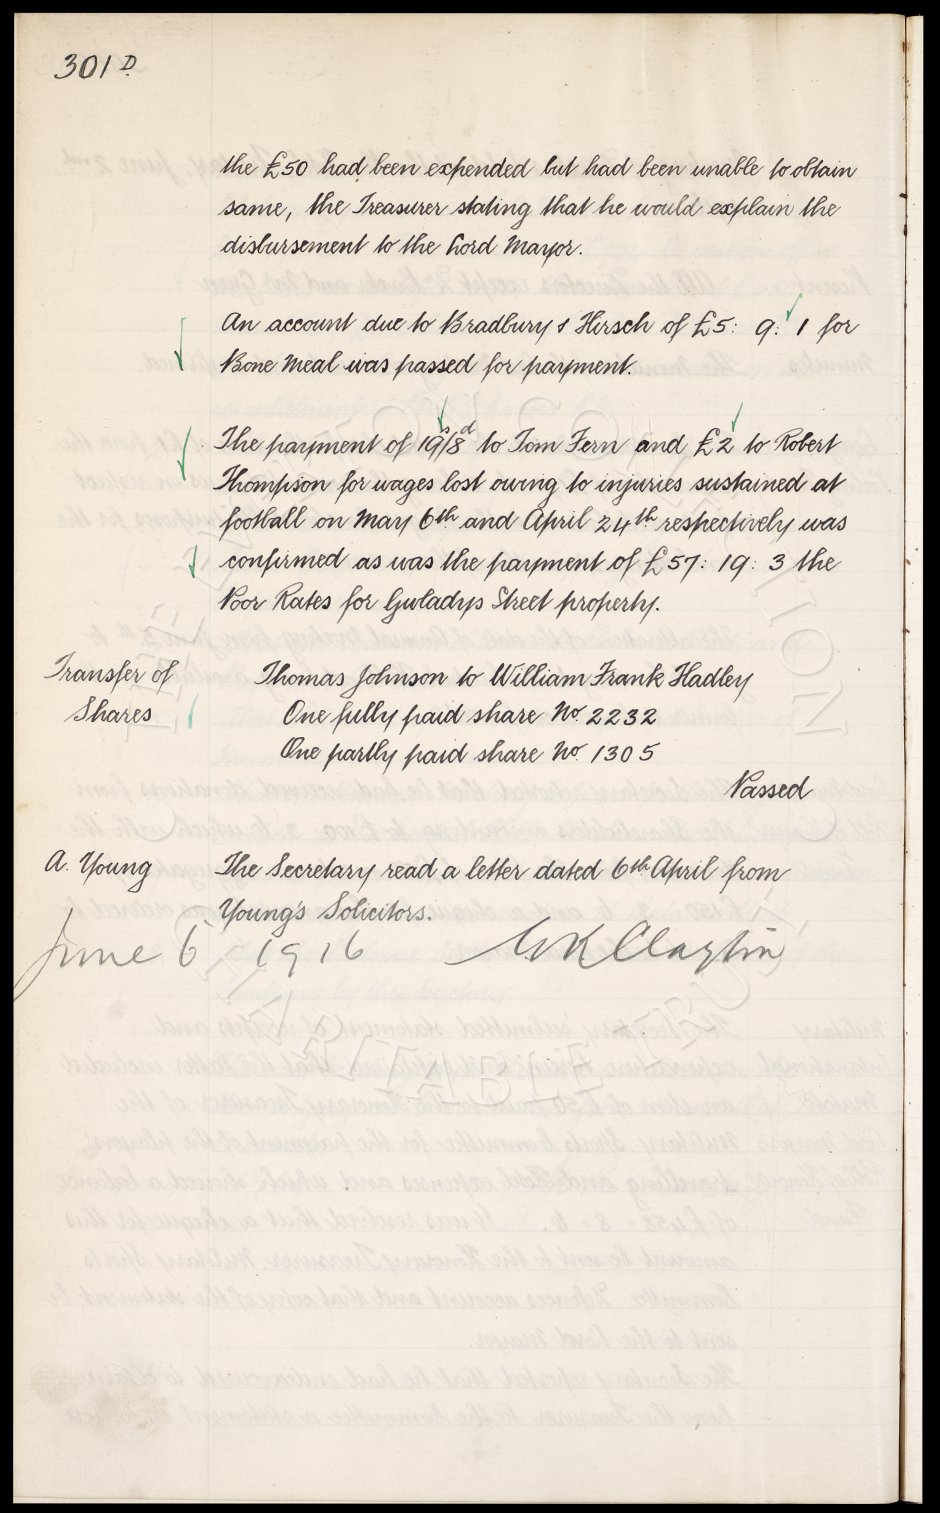 301 D.
the £50 had been expended but had been unable to obtain
same, the Treasurer stating that he would explain the
disbursement to the Lord Mayor.
An account due to Bradbury & Hirsch of £5: 9: 1 for
Bone Meal was passed for payment.
The payment of 19s/8d to Tom Fern and £2 to Robert
Thompson for wages lost owing to injuries sustained at
football on May 6th and April 24th respectively was
confirmed as was the payment of £57: 19: 3 the
Poor Rates for Gwladys Street property.
Transfer of Thomas Johnson to William Frank Hadley
Shares One fully paid share No. 2232
One partly paid share No. 1305
Passed
A. Young The Secretary read a letter dated 6th April from
Young's Solicitors.
June 6 1916 Clayton
CHARITABLE TRUST